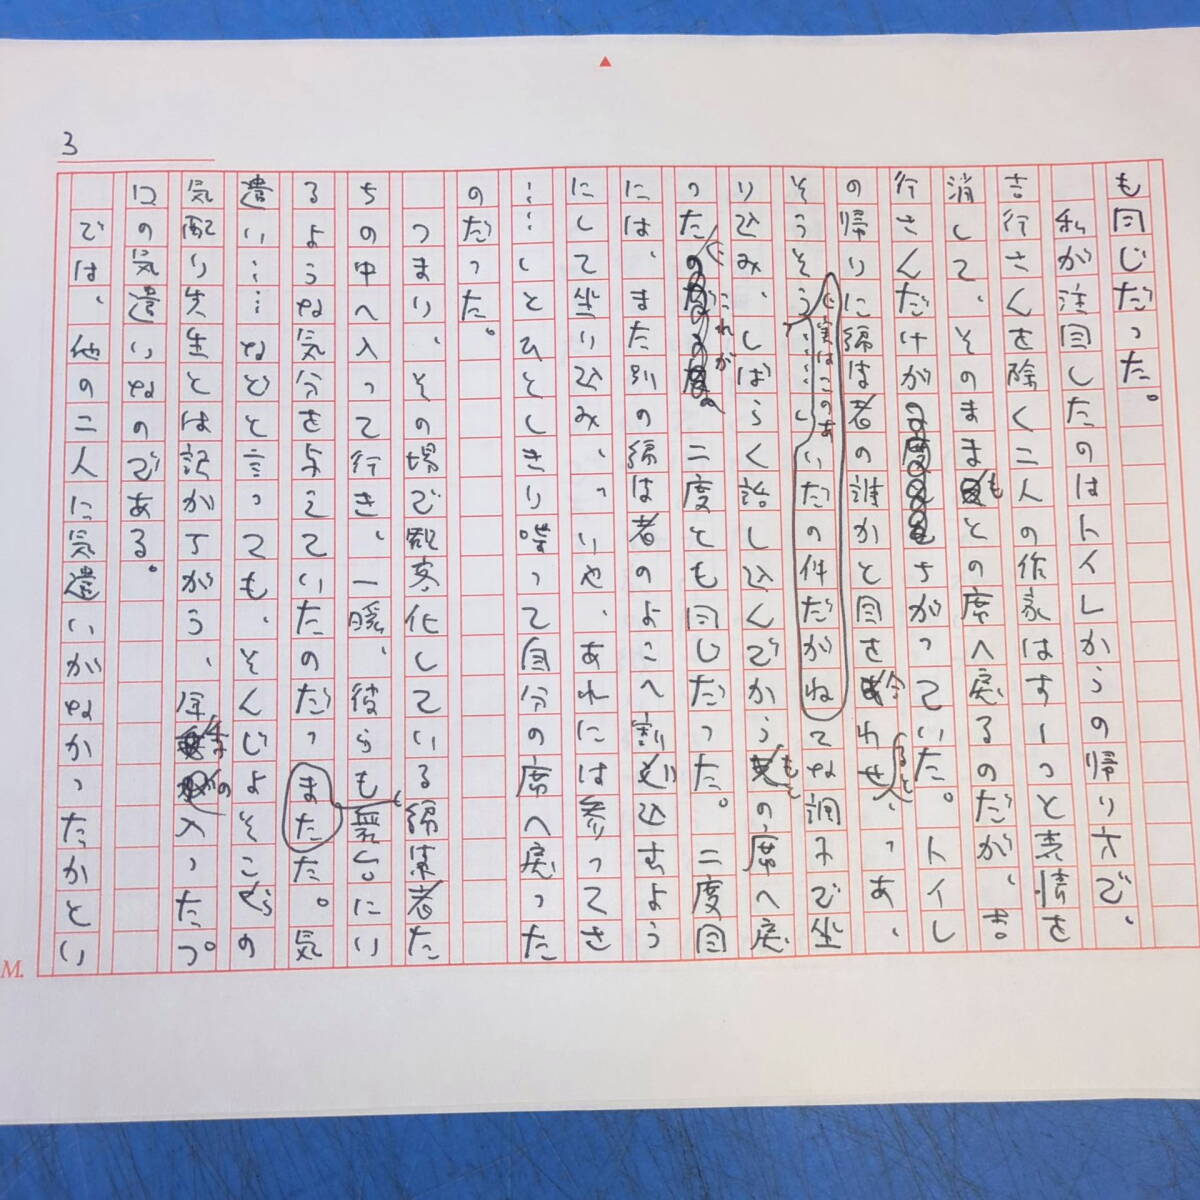 3
も同じだった。
私が注目したのはトイレからの帰り方で、
吉行さんを除く二人の作家はすーっと表情を
消して、そのままもとの席へ戻るのだが、吉
行さんだけがちがっていた。トイレ
の帰りに編は者の誰かと目を合わせると、っあ、
そうそう、実はこのあいだの件だがねてな調子で坐
り込み、しばらく話し込んでからもとの席へ戻
った。これが二度とも同じだった。二度目
には、また別の編は者のよこへ割り込むよう
にして坐り込み、っいや、あれには参ってさ
……しとひとしきり喋って自分の席へ戻った
のだった。
つまり、その場で観客化している編集者た
ちの中へ入って行き、一瞬、彼らも舞台にい
るような気分を与えていたのだった。気
遣い……などと言っても、そんじょそこらの
気配り先生とは記がちがう、年季の入った
口の気遣いなのである。
では、他の二人に気遣いがなかったかとい
M.